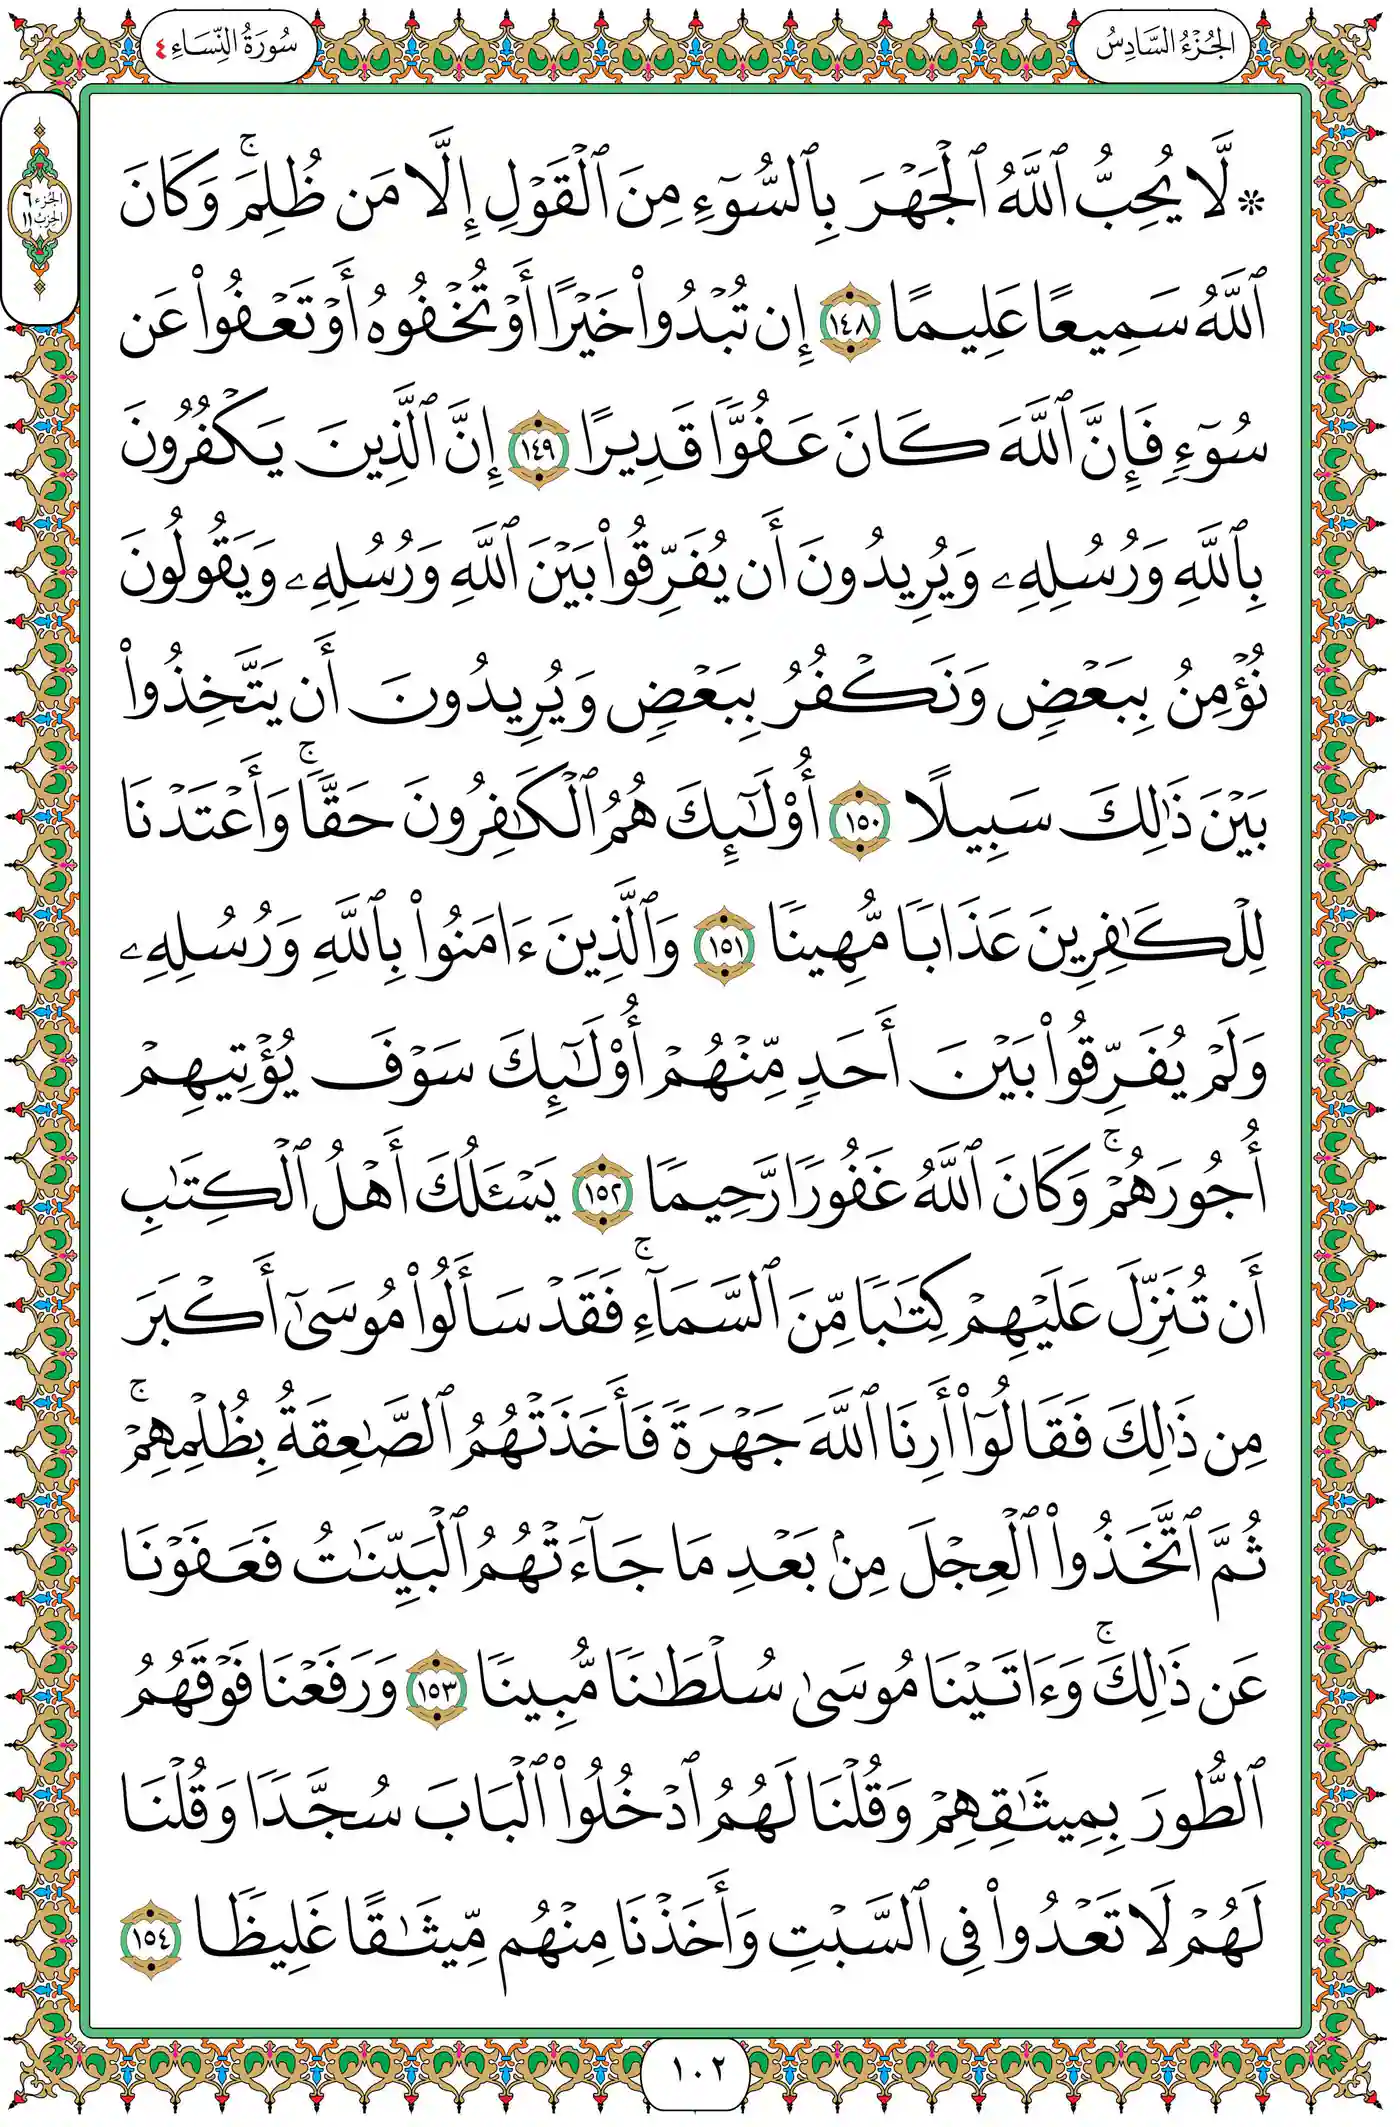 الجُزْءُ السَّادِسُ
سُورَةُ النِّسَاءِ ٤
الجزء ٦
الحزب ١١
۞ لَّا يُحِبُّ ٱللَّهُ ٱلۡجَهۡرَ بِٱلسُّوٓءِ مِنَ ٱلۡقَوۡلِ إِلَّا مَن ظُلِمَۚ وَكَانَ
ٱللَّهُ سَمِيعًا عَلِيمًا ١٤٨ إِن تُبۡدُواْ خَيۡرًا أَوۡ تُخۡفُوهُ أَوۡ تَعۡفُواْ عَن
سُوٓءٖ فَإِنَّ ٱللَّهَ كَانَ عَفُوّٗا قَدِيرًا ١٤٩ إِنَّ ٱلَّذِينَ يَكۡفُرُونَ
بِٱللَّهِ وَرُسُلِهِۦ وَيُرِيدُونَ أَن يُفَرِّقُواْ بَيۡنَ ٱللَّهِ وَرُسُلِهِۦ وَيَقُولُونَ
نُؤۡمِنُ بِبَعۡضٖ وَنَكۡفُرُ بِبَعۡضٖ وَيُرِيدُونَ أَن يَتَّخِذُواْ
بَيۡنَ ذَٰلِكَ سَبِيلًا ١٥٠ أُوْلَٰٓئِكَ هُمُ ٱلۡكَٰفِرُونَ حَقّٗاۚ وَأَعۡتَدۡنَا
لِلۡكَٰفِرِينَ عَذَابٗا مُّهِينٗا ١٥١ وَٱلَّذِينَ ءَامَنُواْ بِٱللَّهِ وَرُسُلِهِۦ
وَلَمۡ يُفَرِّقُواْ بَيۡنَ أَحَدٖ مِّنۡهُمۡ أُوْلَٰٓئِكَ سَوۡفَ يُؤۡتِيهِمۡ
أُجُورَهُمۡۚ وَكَانَ ٱللَّهُ غَفُورٗا رَّحِيمٗا ١٥٢ يَسۡـَٔلُكَ أَهۡلُ ٱلۡكِتَٰبِ
أَن تُنَزِّلَ عَلَيۡهِمۡ كِتَٰبٗا مِّنَ ٱلسَّمَآءِۚ فَقَدۡ سَأَلُواْ مُوسَىٰٓ أَكۡبَرَ
مِن ذَٰلِكَ فَقَالُوٓاْ أَرِنَا ٱللَّهَ جَهۡرَةٗ فَأَخَذَتۡهُمُ ٱلصَّٰعِقَةُ بِظُلۡمِهِمۡۚ
ثُمَّ ٱتَّخَذُواْ ٱلۡعِجۡلَ مِنۢ بَعۡدِ مَا جَآءَتۡهُمُ ٱلۡبَيِّنَٰتُ فَعَفَوۡنَا
عَن ذَٰلِكَۚ وَءَاتَيۡنَا مُوسَىٰ سُلۡطَٰنٗا مُّبِينٗا ١٥٣ وَرَفَعۡنَا فَوۡقَهُمُ
ٱلطُّورَ بِمِيثَٰقِهِمۡ وَقُلۡنَا لَهُمُ ٱدۡخُلُواْ ٱلۡبَابَ سُجَّدٗا وَقُلۡنَا
لَهُمۡ لَا تَعۡدُواْ فِي ٱلسَّبۡتِ وَأَخَذۡنَا مِنۡهُم مِّيثَٰقًا غَلِيظٗا ١٥٤
١٠٢